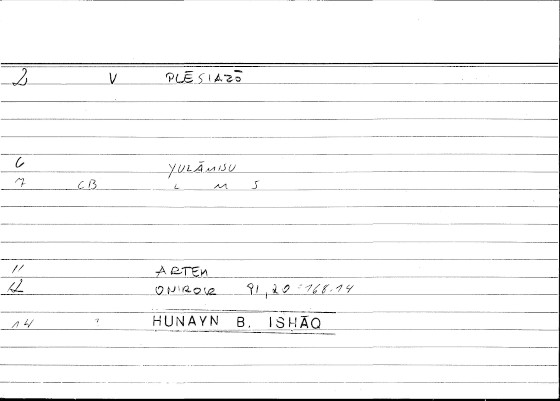 2 V PLĒSIAZŌ
6 YULĀMISU
7 CB L M S
11 ARTEM
12 ONIROCR 91,20 = 168.14
14 " HUNAYN B. ISHĀQ